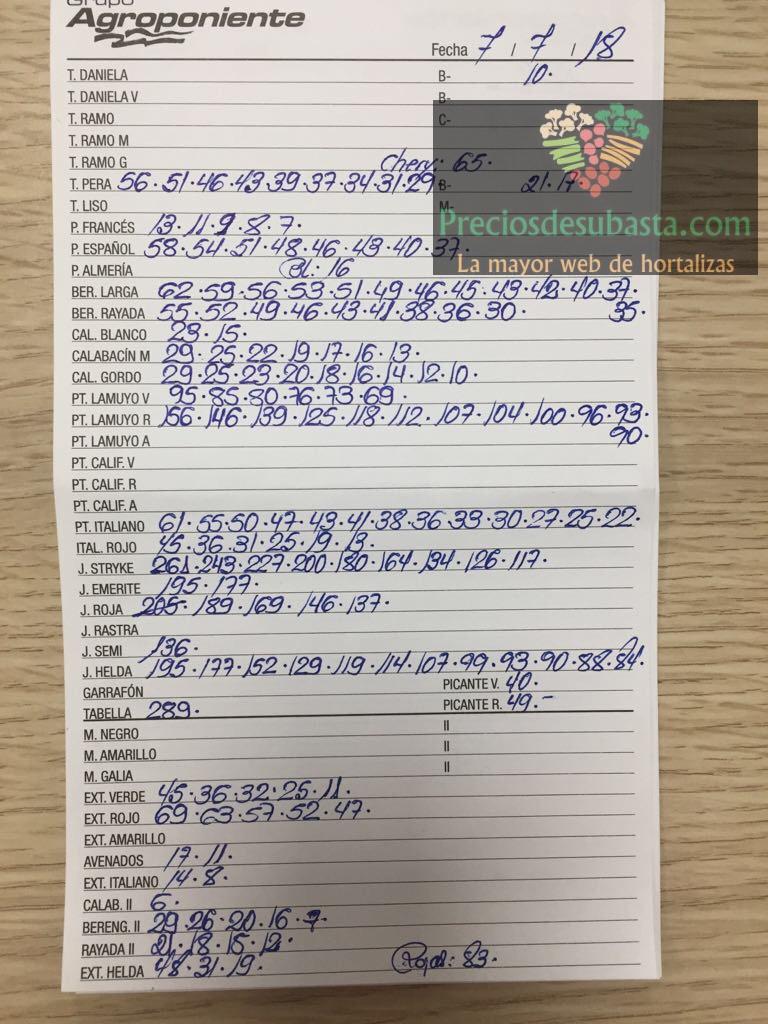 Grupo
Agroponiente
Fecha 7 / 7 / 18
T. DANIELA B- 10.
T. DANIELA V B-
T. RAMO C-
T. RAMO M
T. RAMO G Cherr.: 65.
T. PERA 56.51.46.43.39.37.34.31.29 B- 21.17.
T. LISO M-
P. FRANCÉS 13.11.9.8.7.
Preciosdesubasta.com
P. ESPAÑOL 58.54.51.48.46.43.40.37.
La mayor web de hortalizas
P. ALMERÍA Bl.: 16
BER. LARGA 62.59.56.53.51.49.46.45.43.42.40.37.
BER. RAYADA 55.52.49.46.43.41.38.36.30. 35.
CAL. BLANCO 23.15.
CALABACÍN M 29.25.22.19.17.16.13.
CAL. GORDO 29.25.23.20.18.16.14.12.10.
PT. LAMUYO V 95.85.80.76.73.69.
PT. LAMUYO R 156.146.139.125.118.112.107.104.100.96.93.
PT. LAMUYO A 90.
PT. CALIF. V
PT. CALIF. R
PT. CALIF. A
PT. ITALIANO 61.55.50.47.43.41.38.36.33.30.27.25.22.
ITAL. ROJO 45.36.31.25.19.13.
J. STRYKE 261.243.227.200.180.164.134.126.117.
J. EMERITE 195.177.
J. ROJA 205.189.169.146.137.
J. RASTRA
J. SEMI 136.
J. HELDA 195.177.152.129.119.114.107.99.93.90.88.84.
GARRAFÓN PICANTE V. 40.
TABELLA 289. PICANTE R. 49.-
M. NEGRO II
M. AMARILLO II
M. GALIA II
EXT. VERDE 45.36.32.25.11.
EXT. ROJO 69.63.57.52.47.
EXT. AMARILLO
AVENADOS 17.11.
EXT. ITALIANO 14.8.
CALAB. II 6.
BERENG. II 29.26.20.16.7
RAYADA II 21.18.15.12.
EXT. HELDA 48.31.19. 83.